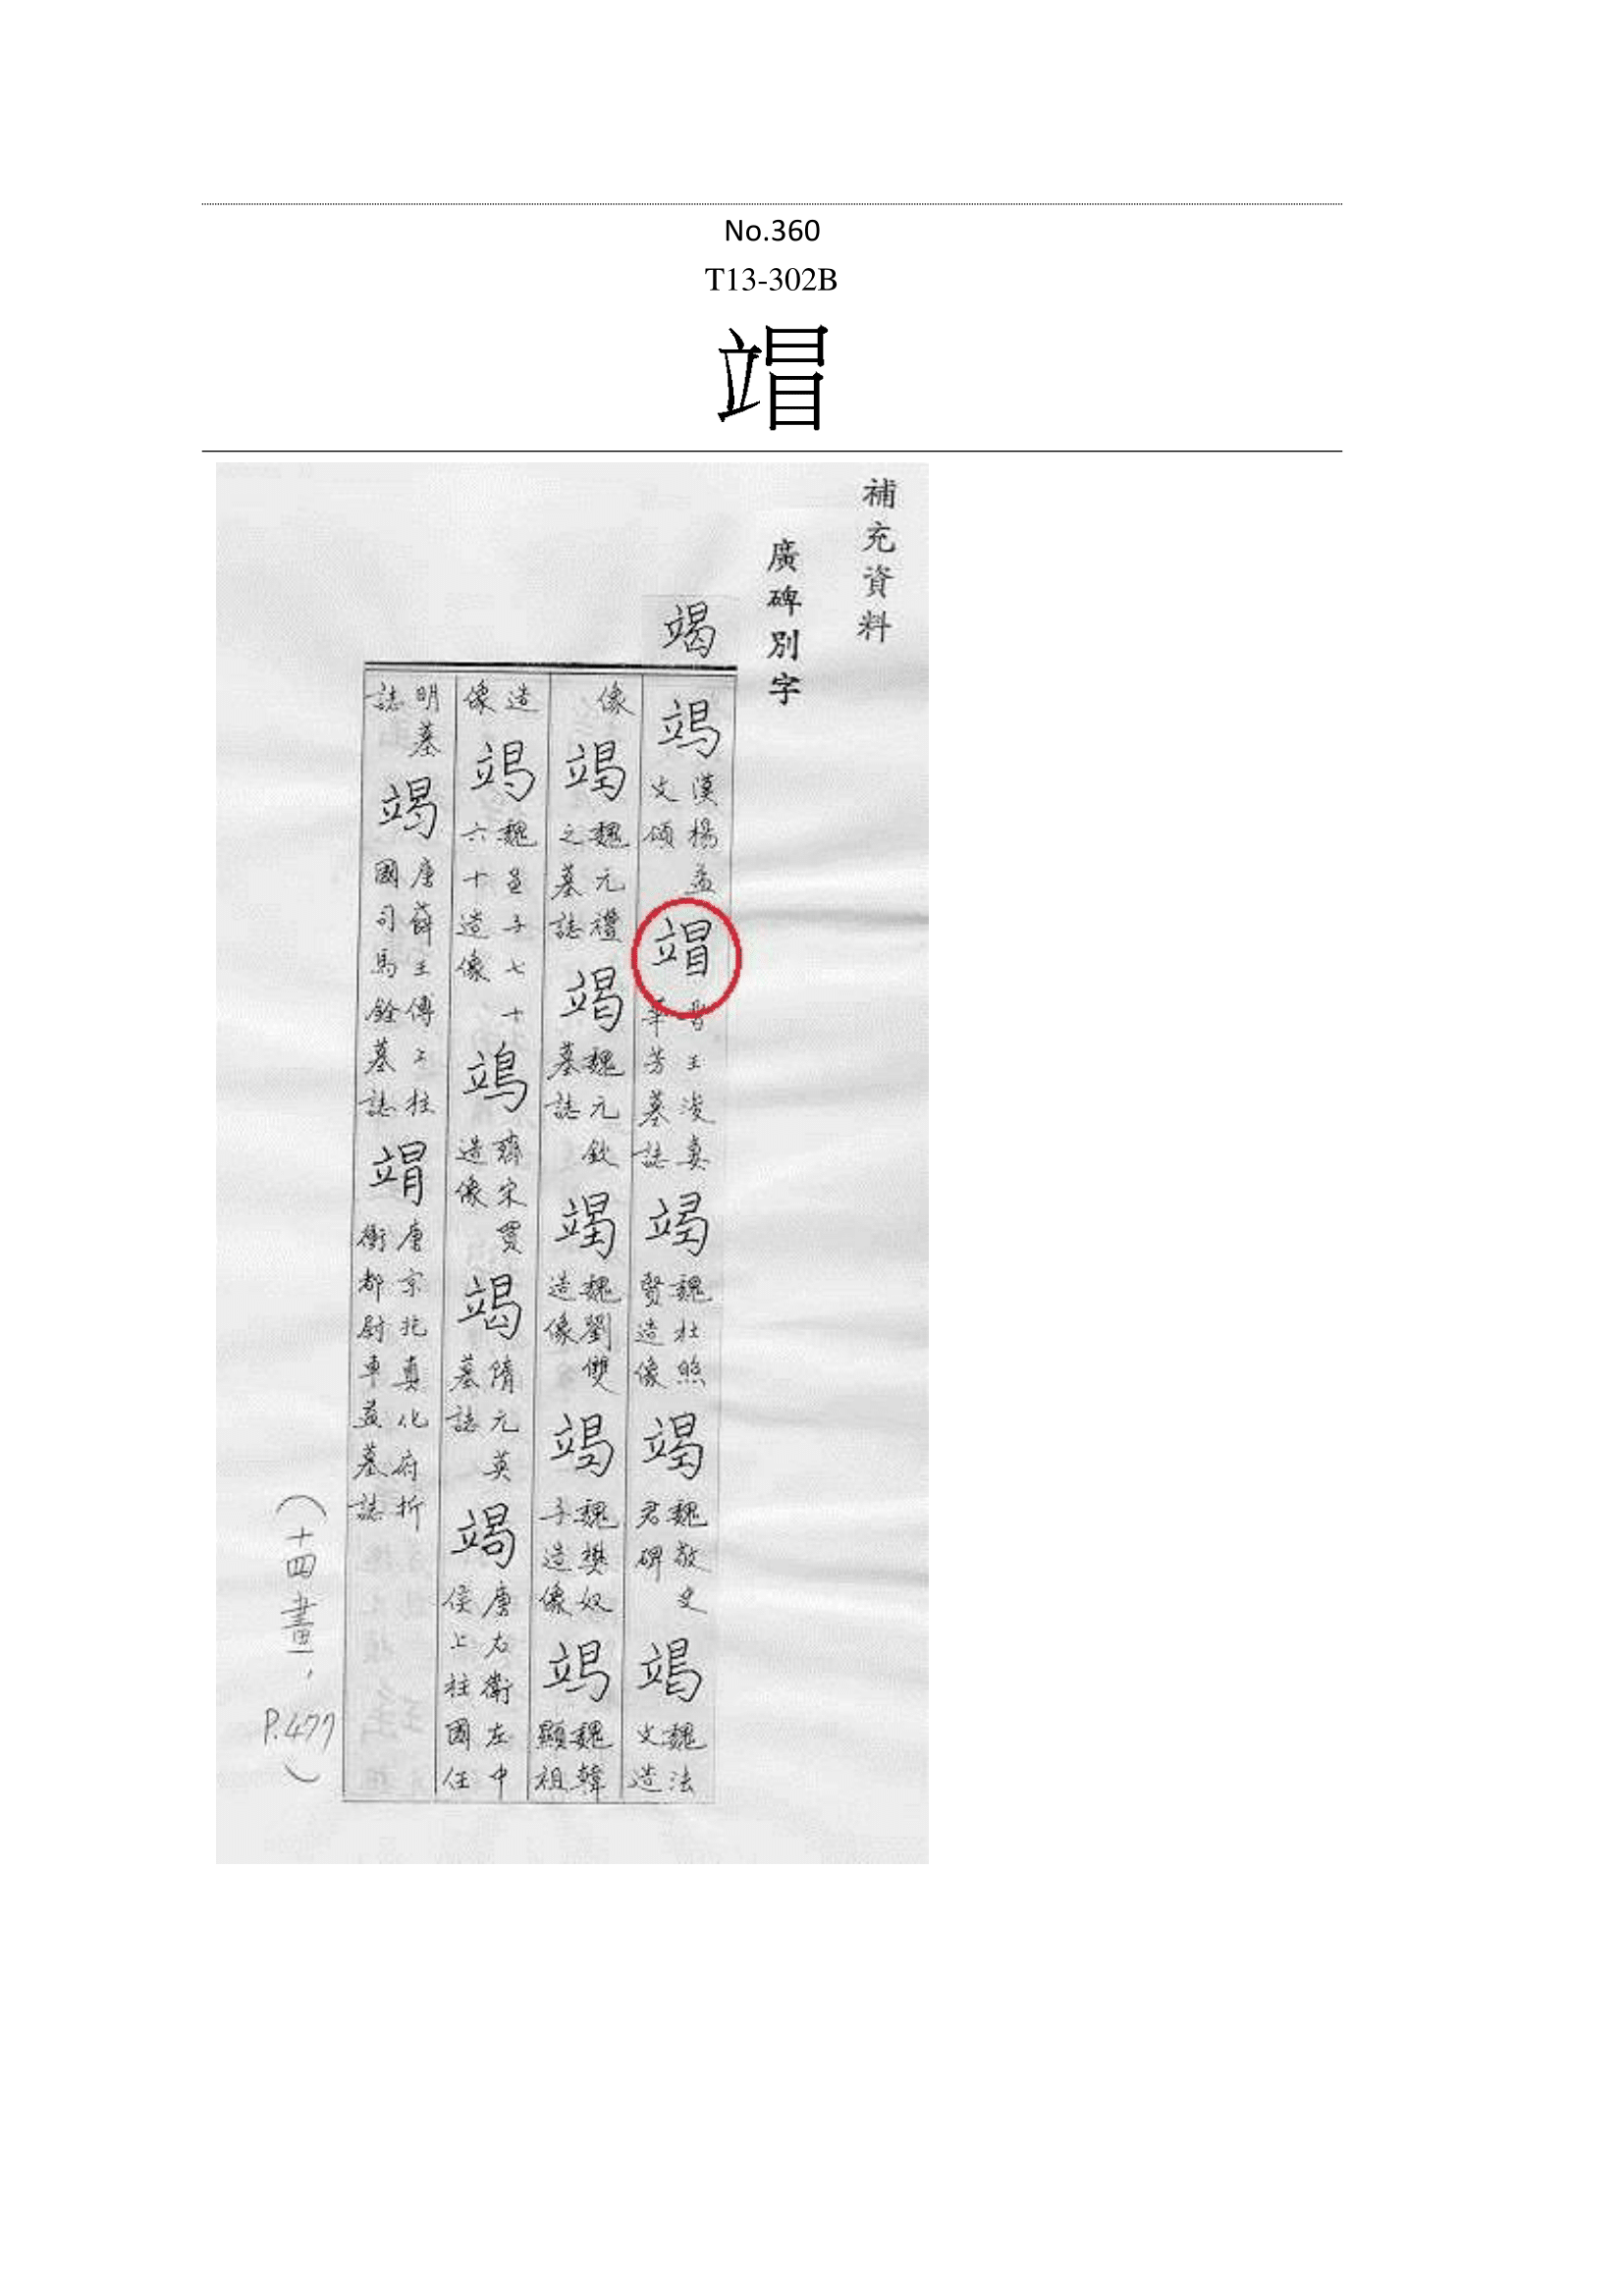 No.360
T13-302B
補充資料
廣碑別字
竭
漢楊孟文頌 晉王浚妻華芳墓誌 魏杜照賢造像 魏敬史君碑 魏法文造
像 魏元禮之墓誌 魏元欽墓誌 魏劉雙造像 魏樊奴子造像 魏韓顯祖
造像 魏邑子七十六十造像 齊宋買造像 竭 隋元英墓誌 唐右衛左中侯上柱國任
明墓誌 唐薛王傅上柱國司馬銓墓誌 唐京兆真化府折衝都尉車益墓誌
（十四畫，P.477）